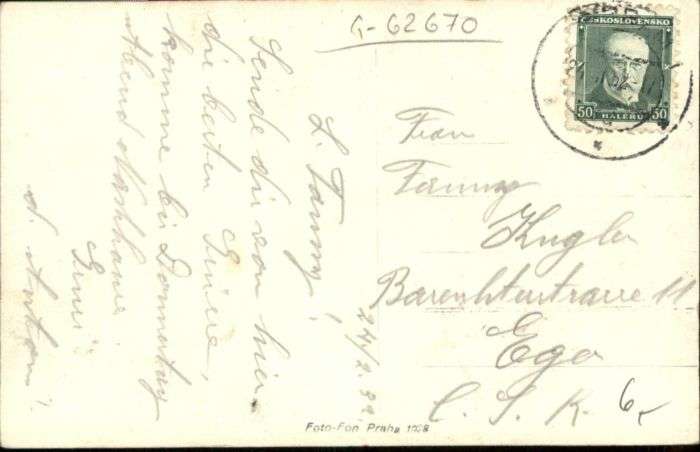 G-62670
ČESKOSLOVENSKO
50 HALÉŘŮ 50
24/2. 32.
L. Fanny!
Sende dir von hier
die besten Grüsse,
komme bis Donnerstag
Abend Nachhause
Gruss
d. Anton
Frau
Fanny
Kugler
Eger
C. S. R.
6,-
Foto-Fon Praha